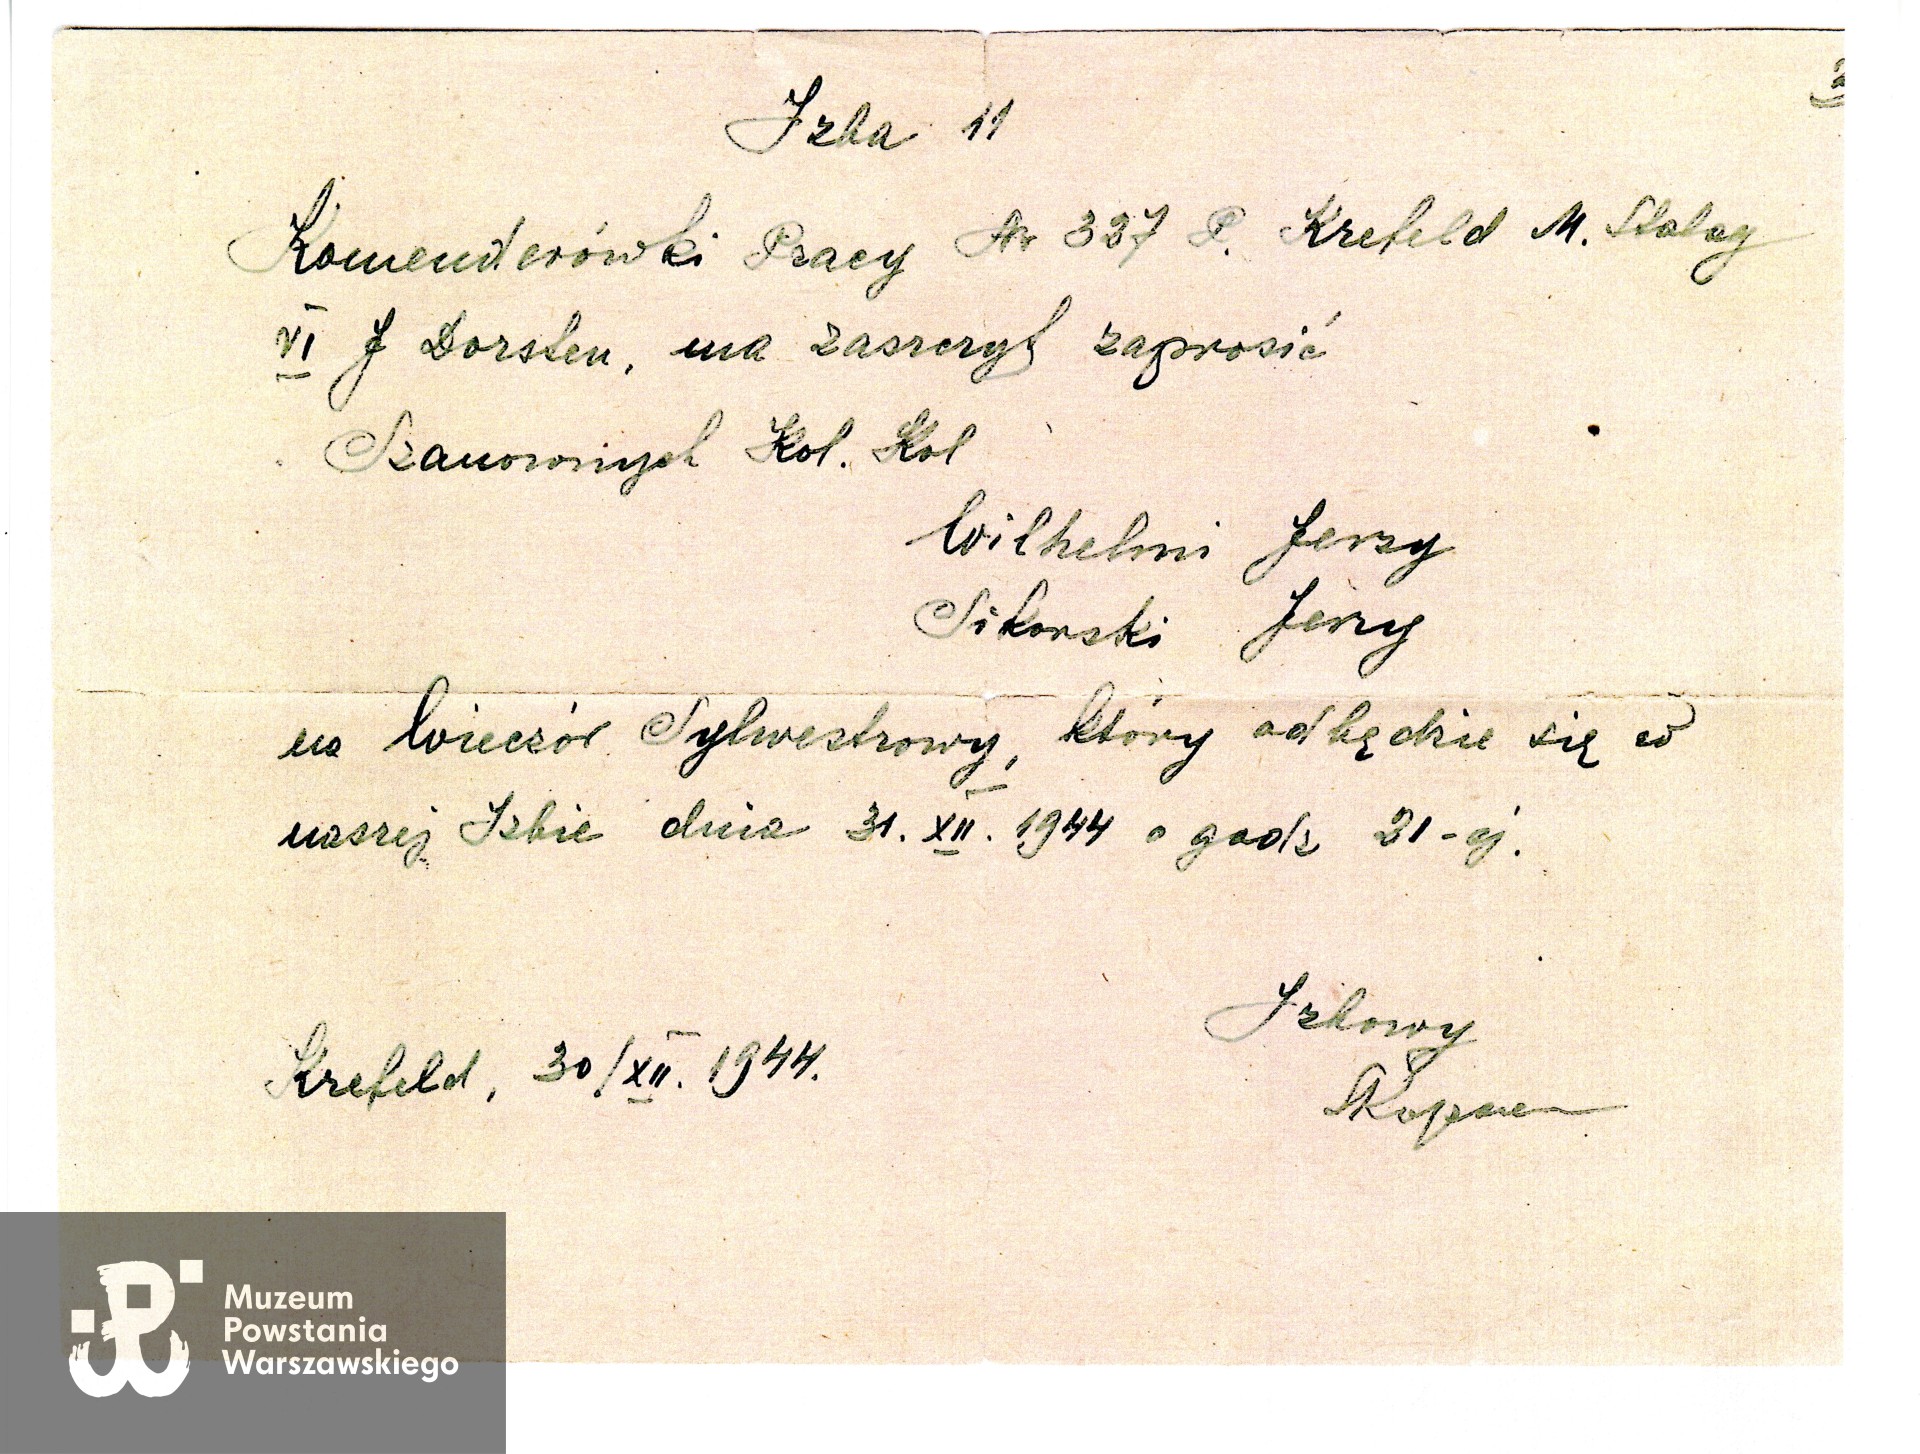 Izba 11
Komenderówki Pracy Nr 337 P. Krefeld M. Stalag
VI J Dorsten, ma zaszczyt zaprosić
Szanownych Kol. Kol
Wilhelmi Jerzy
Sikorski Jerzy
na Wieczór Sylwestrowy, który odbędzie się w
naszej Izbie dnia 31. XII. 1944 o godz 21-ej.
Izbowy
Krefeld, 30/XII. 1944.
Muzeum
Powstania
Warszawskiego